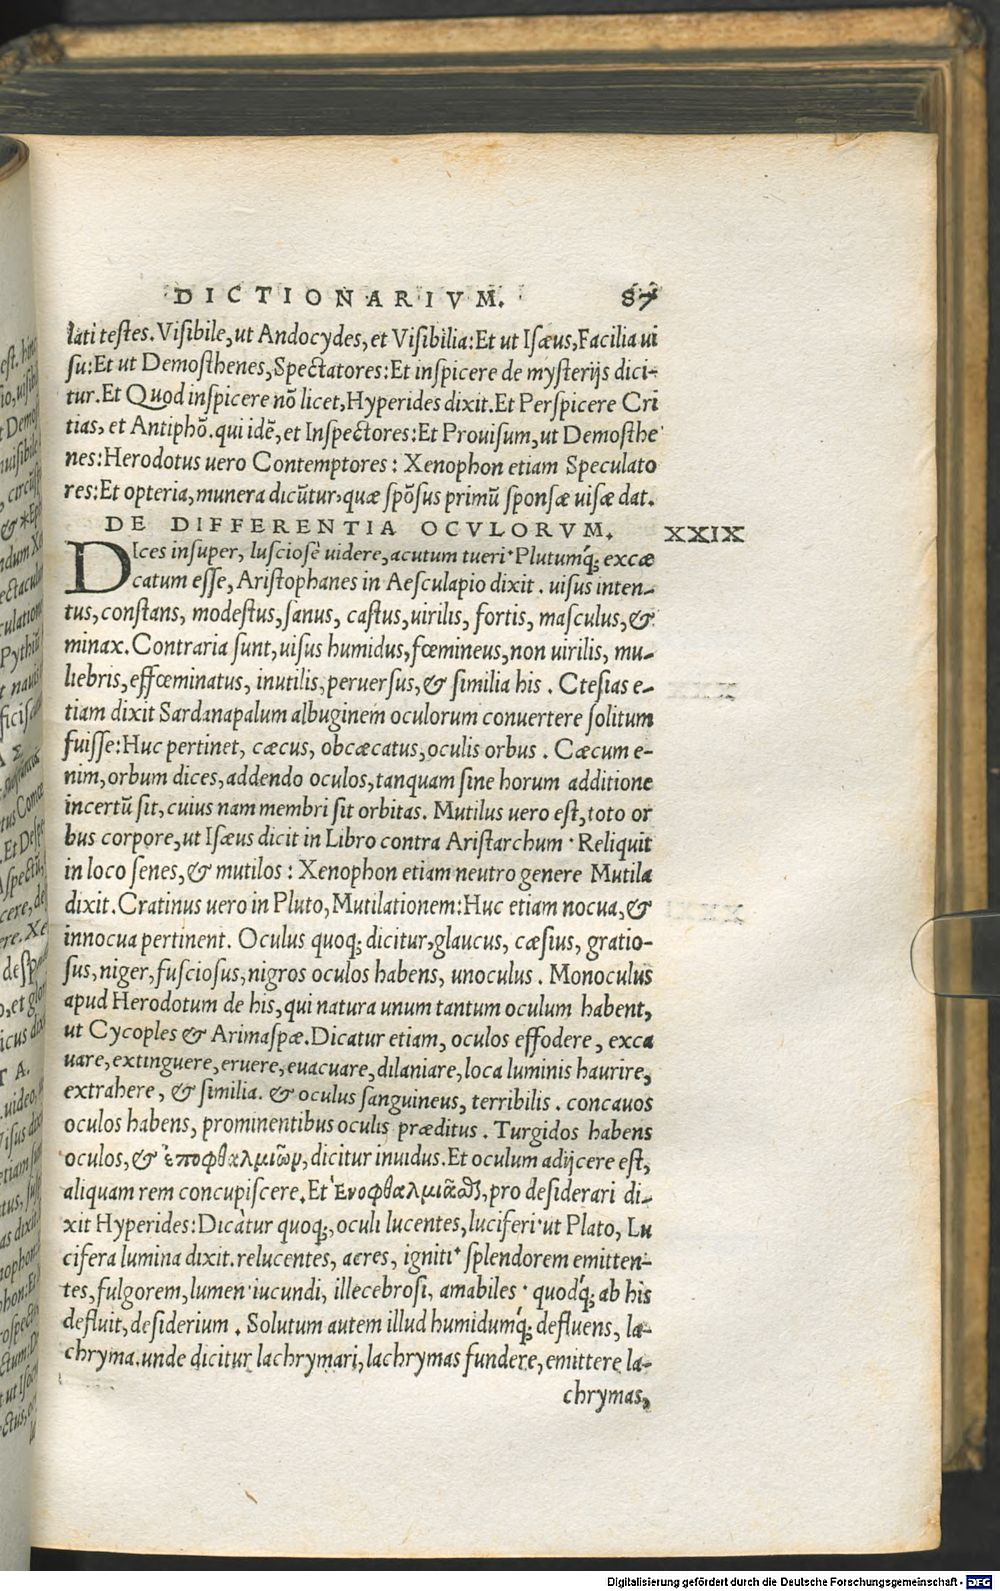 DICTIONARIVM. 87
lati testes. Visibile, ut Andocydes, et Visibilia: Et ut Isæus, Facilia ui
su: Et ut Demosthenes, Spectatores: Et inspicere de mysterijs dici-
tur. Et Quod inspicere nõ licet, Hyperides dixit. Et Perspicere Cri
tias, et Antiphõ. qui idẽ, et Inspectores: Et Prouisum, ut Demosthe
nes: Herodotus uero Contemptores: Xenophon etiam Speculato
res: Et opteria, munera dicũtur, quæ spõsus primũ sponsæ uisæ dat.
DE DIFFERENTIA OCVLORVM. XXIX
DIces insuper, lusciose uidere, acutum tueri. Plutumq́; excæ
catum esse, Aristophanes in Aesculapio dixit. uisus inten-
tus, constans, modestus, sanus, castus, uirilis, fortis, masculus, &
minax. Contraria sunt, uisus humidus, fœmineus, non uirilis, mu-
liebris, effœminatus, inutilis, peruersus, & similia his. Ctesias e-
tiam dixit Sardanapalum albuginem oculorum conuertere solitum
fuisse: Huc pertinet, cæcus, obcæcatus, oculis orbus. Cæcum e-
nim, orbum dices, addendo oculos, tanquam sine horum additione
incertũ sit, cuius nam membri sit orbitas. Mutilus uero est, toto or
bus corpore, ut Isæus dicit in Libro contra Aristarchum. Reliquit
in loco senes, & mutilos: Xenophon etiam neutro genere Mutila
dixit. Cratinus uero in Pluto, Mutilationem: Huc etiam nocua, &
innocua pertinent. Oculus quoq; dicitur, glaucus, cæsius, gratio-
sus, niger, fusciosus, nigros oculos habens, unoculus. Monoculus
apud Herodotum de his, qui natura unum tantum oculum habent,
ut Cycoples & Arimaspæ. Dicatur etiam, oculos effodere, exca
uare, extinguere, eruere, euacuare, dilaniare, loca luminis haurire,
extrahere, & similia. & oculus sanguineus, terribilis. concauos
oculos habens, prominentibus oculis præditus. Turgidos habens
oculos, & ἐποφθαλμιῶν, dicitur inuidus. Et oculum adijcere est,
aliquam rem concupiscere. Et Ἐνοφθαλμιᾶσθ, pro desiderari di-
xit Hyperides: Dicàtur quoq;, oculi lucentes, luciferi. ut Plato, Lu
cifera lumina dixit. relucentes, acres, igniti. splendorem emitten-
tes, fulgorem, lumen. iucundi, illecebrosi, amabiles. quodq́; ab his
defluit, desiderium. Solutum autem illud humidumq́; defluens, la-
chryma. unde dicitur lachrymari, lachrymas fundere, emittere la-
chrymas,
Digitalisierung gefördert durch die Deutsche Forschungsgemeinschaft - DFG